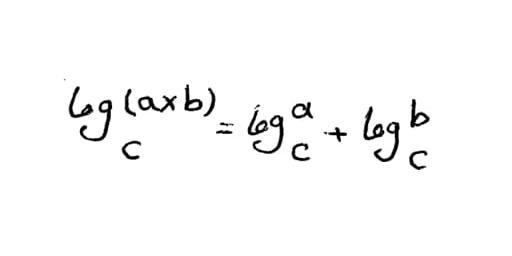 log_c^(a×b) = log_c^a + log_c^b